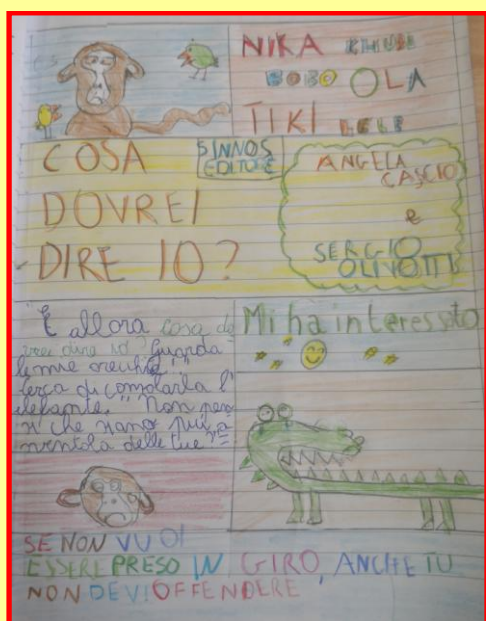 NIKA KHUBE
BOBO OLA
TIKI LELE
COSA
DOVREI
DIRE IO?
SINNOS
EDITORE
ANGELA
CASCIO
e
SERGIO
OLIVOTTI
"E allora cosa do
vrei dire io? Guarda
le mie orecchie"
cerca di consolarla l'
elefante. "Non pen
si che siano più a
ventola delle tue?"
Mi ha interessato
SE NON VUOI
ESSERE PRESO IN GIRO, ANCHE TU
NON DEVI OFFENDERE